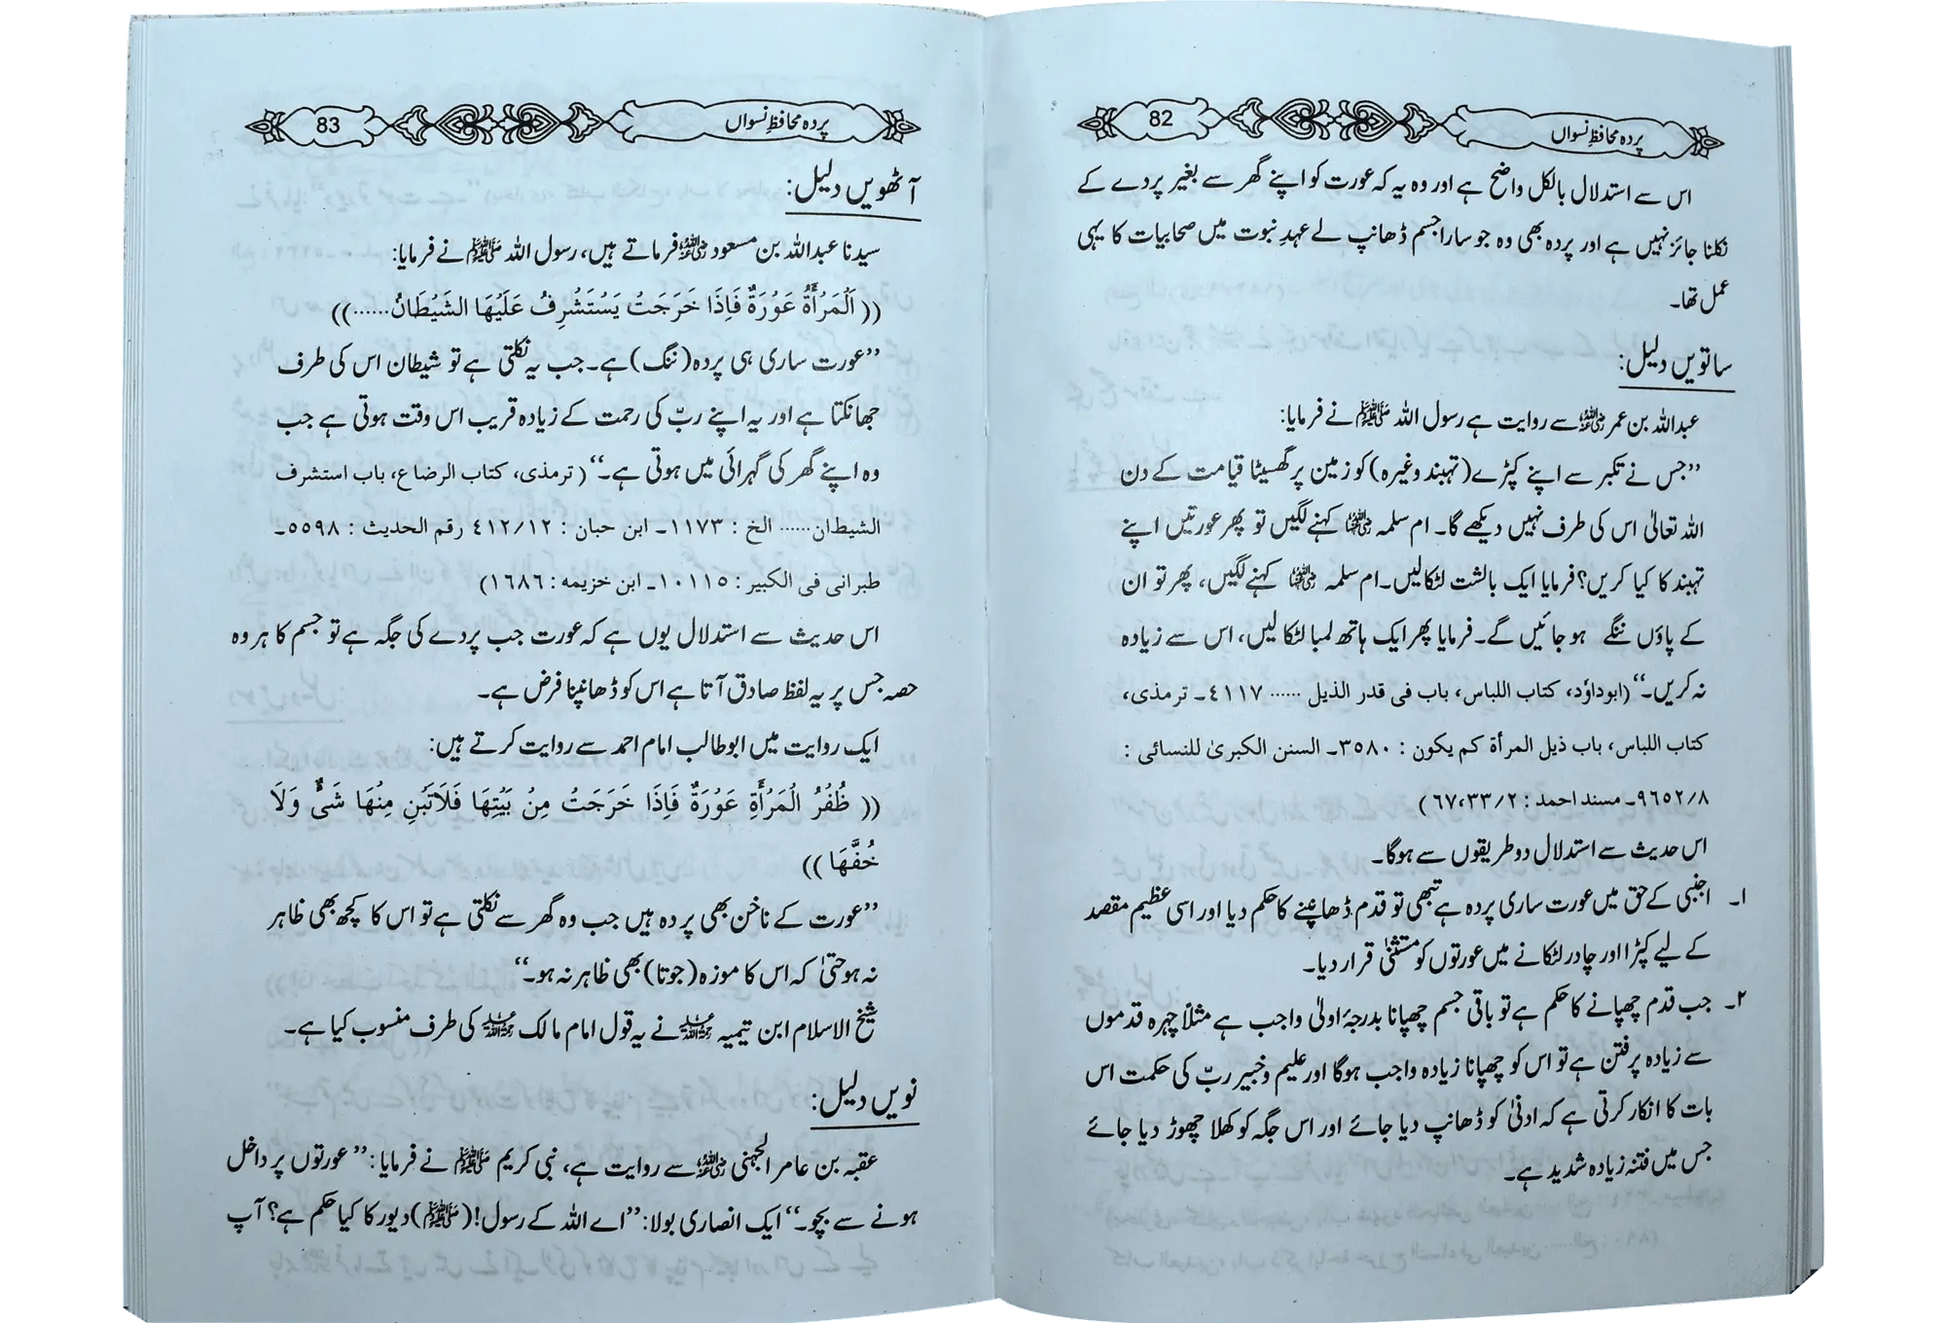 پردہ محافظِ نسواں 82
اس سے استدلال بالکل واضح ہے اور وہ یہ کہ عورت کو اپنے گھر سے بغیر پردے کے
نکلنا جائز نہیں ہے اور پردہ بھی وہ جو سارا جسم ڈھانپ لے عہدِ نبوت میں صحابیات کا یہی
عمل تھا۔
ساتویں دلیل:
عبداللہ بن عمر رضی اللہ عنہ سے روایت ہے رسول اللہ ﷺ نے فرمایا:
”جس نے تکبر سے اپنے کپڑے (تہبند وغیرہ) کو زمین پر گھسیٹا قیامت کے دن
اللہ تعالیٰ اس کی طرف نہیں دیکھے گا۔ ام سلمہ رضی اللہ عنہا کہنے لگیں تو پھر عورتیں اپنے
تہبند کا کیا کریں؟ فرمایا ایک بالشت لٹکا لیں۔ ام سلمہ رضی اللہ عنہا کہنے لگیں، پھر تو ان
کے پاؤں ننگے ہو جائیں گے۔ فرمایا پھر ایک ہاتھ لمبا لٹکا لیں، اس سے زیادہ
نہ کریں۔“ (ابوداؤد، کتاب اللباس، باب فی قدر الذیل ...... ٤١١٧۔ ترمذی،
کتاب اللباس، باب ذیل المرأة کم یکون : ٣٥٨٠۔ السنن الکبریٰ للنسائی :
٩٦٥٢/٨۔ مسند احمد : ٦٧،٣٣/٢)
اس حدیث سے استدلال دو طریقوں سے ہوگا۔
۱۔ اجنبی کے حق میں عورت ساری پردہ ہے تبھی تو قدم ڈھانپنے کا حکم دیا اور اسی عظیم مقصد
کے لیے کپڑا اور چادر لٹکانے میں عورتوں کو مستثنیٰ قرار دیا۔
۲۔ جب قدم چھپانے کا حکم ہے تو باقی جسم چھپانا بدرجۂ اولیٰ واجب ہے مثلاً چہرہ قدموں
سے زیادہ پرفتن ہے تو اس کو چھپانا زیادہ واجب ہوگا اور علیم وخبیر ربّ کی حکمت اس
بات کا انکار کرتی ہے کہ ادنیٰ کو ڈھانپ دیا جائے اور اس جگہ کو کھلا چھوڑ دیا جائے
جس میں فتنہ زیادہ شدید ہے۔
پردہ محافظِ نسواں 83
آٹھویں دلیل:
سیدنا عبداللہ بن مسعود رضی اللہ عنہ فرماتے ہیں، رسول اللہ ﷺ نے فرمایا:
(( اَلْمَرْأَةُ عَوْرَةٌ فَاِذَا خَرَجَتْ يَسْتَشْرِفُ عَلَيْهَا الشَّيْطَانُ......))
”عورت ساری ہی پردہ (ننگ) ہے۔ جب یہ نکلتی ہے تو شیطان اس کی طرف
جھانکتا ہے اور یہ اپنے ربّ کی رحمت کے زیادہ قریب اس وقت ہوتی ہے جب
وہ اپنے گھر کی گہرائی میں ہوتی ہے۔“ (ترمذی، کتاب الرضاع، باب استشرف
الشیطان...... الخ : ١١٧٣۔ ابن حبان : ٤١٢/١٢ رقم الحدیث : ٥٥٩٨۔
طبرانی فی الکبیر : ١٠١١٥۔ ابن خزیمه : ١٦٨٦)
اس حدیث سے استدلال یوں ہے کہ عورت جب پردے کی جگہ ہے تو جسم کا ہر وہ
حصہ جس پر یہ لفظ صادق آتا ہے اس کو ڈھانپنا فرض ہے۔
ایک روایت میں ابوطالب امام احمد سے روایت کرتے ہیں:
(( ظُفُرُ الْمَرْأَةِ عَوْرَةٌ فَاِذَا خَرَجَتْ مِنْ بَيْتِهَا فَلَا تَبِنِ مِنْهَا شَىْءٌ وَلَا
خُفَّهَا ))
”عورت کے ناخن بھی پردہ ہیں جب وہ گھر سے نکلتی ہے تو اس کا کچھ بھی ظاہر
نہ ہو حتیٰ کہ اس کا موزہ (جوتا) بھی ظاہر نہ ہو۔“
شیخ الاسلام ابن تیمیہ رحمہ اللہ نے یہ قول امام مالک رحمہ اللہ کی طرف منسوب کیا ہے۔
نویں دلیل:
عقبہ بن عامر الجہنی رضی اللہ عنہ سے روایت ہے، نبی کریم ﷺ نے فرمایا: ”عورتوں پر داخل
ہونے سے بچو۔“ ایک انصاری بولا: ”اے اللہ کے رسول! (ﷺ) دیور کا کیا حکم ہے؟ آپ